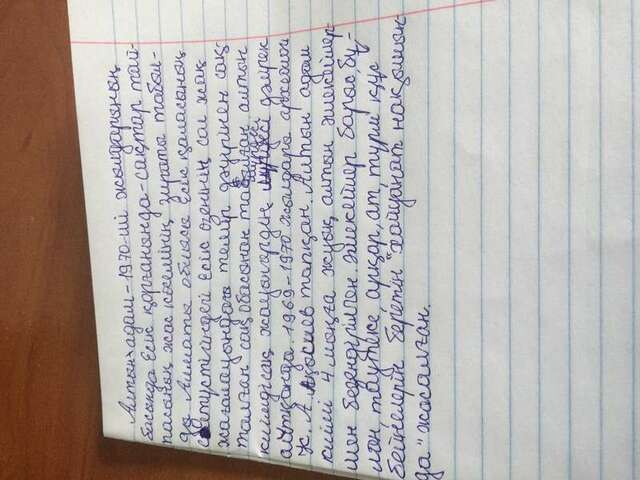 Алтын адам - 1970-ші жылдарының
басында Есік қорғанында - сақтар тай-
пасының жас көсемінің зираты табыл-
ды Алматы облысы Есік қаласының
солтүстігіндегі Есік өзенінің сол жақ
жағалауындағы темір дәуірінен сақ-
талған сақ обасынан табылған алтын
киімді сақ жауынгердің мүрдесі дәлірек
айтқанда. 1969-1970 жылдары археолог
К. А. Ақышев тапқан. Алтын адам
киімі 4 мыңға жуық алтын әшекейлер-
мен безендірілген. Әшекейлер барыс, бұ-
лан, таутеке, арқар, ат, түрлі құс
бейнелерін беретін "хайуанат нақышын-
да" жасалған.